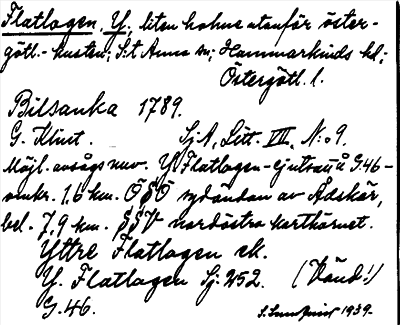 Flatlagen, Y., liten holme utanför öster-
götl.-kusten; S:t Anna sn; Hammarkinds hd;
Östergötl. l.
Bilsanka 1789.
G. Klint. SjA, Litt. VIII, N:o 9.
Möjl. avsågs nuv. Y. Flatlagen - G.46-
omkr. 1,6 km. ÖSÖ sydändan av Ådskär,
bel. 7,9 km. SSV nordöstra karthörnet.
Yttre Flatlagen ek.
Y. Flatlagen Sj. 252. (Vänd!)
G.46. 1939.